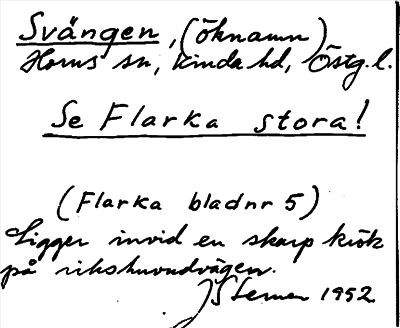 Svängen, (öknamn)
Horns sn, Kinda hd, Östg.l.
Se Flarka stora!
(Flarka bladnr 5)
Ligger invid en skarp krök
på rikshuvudvägen.
1952.